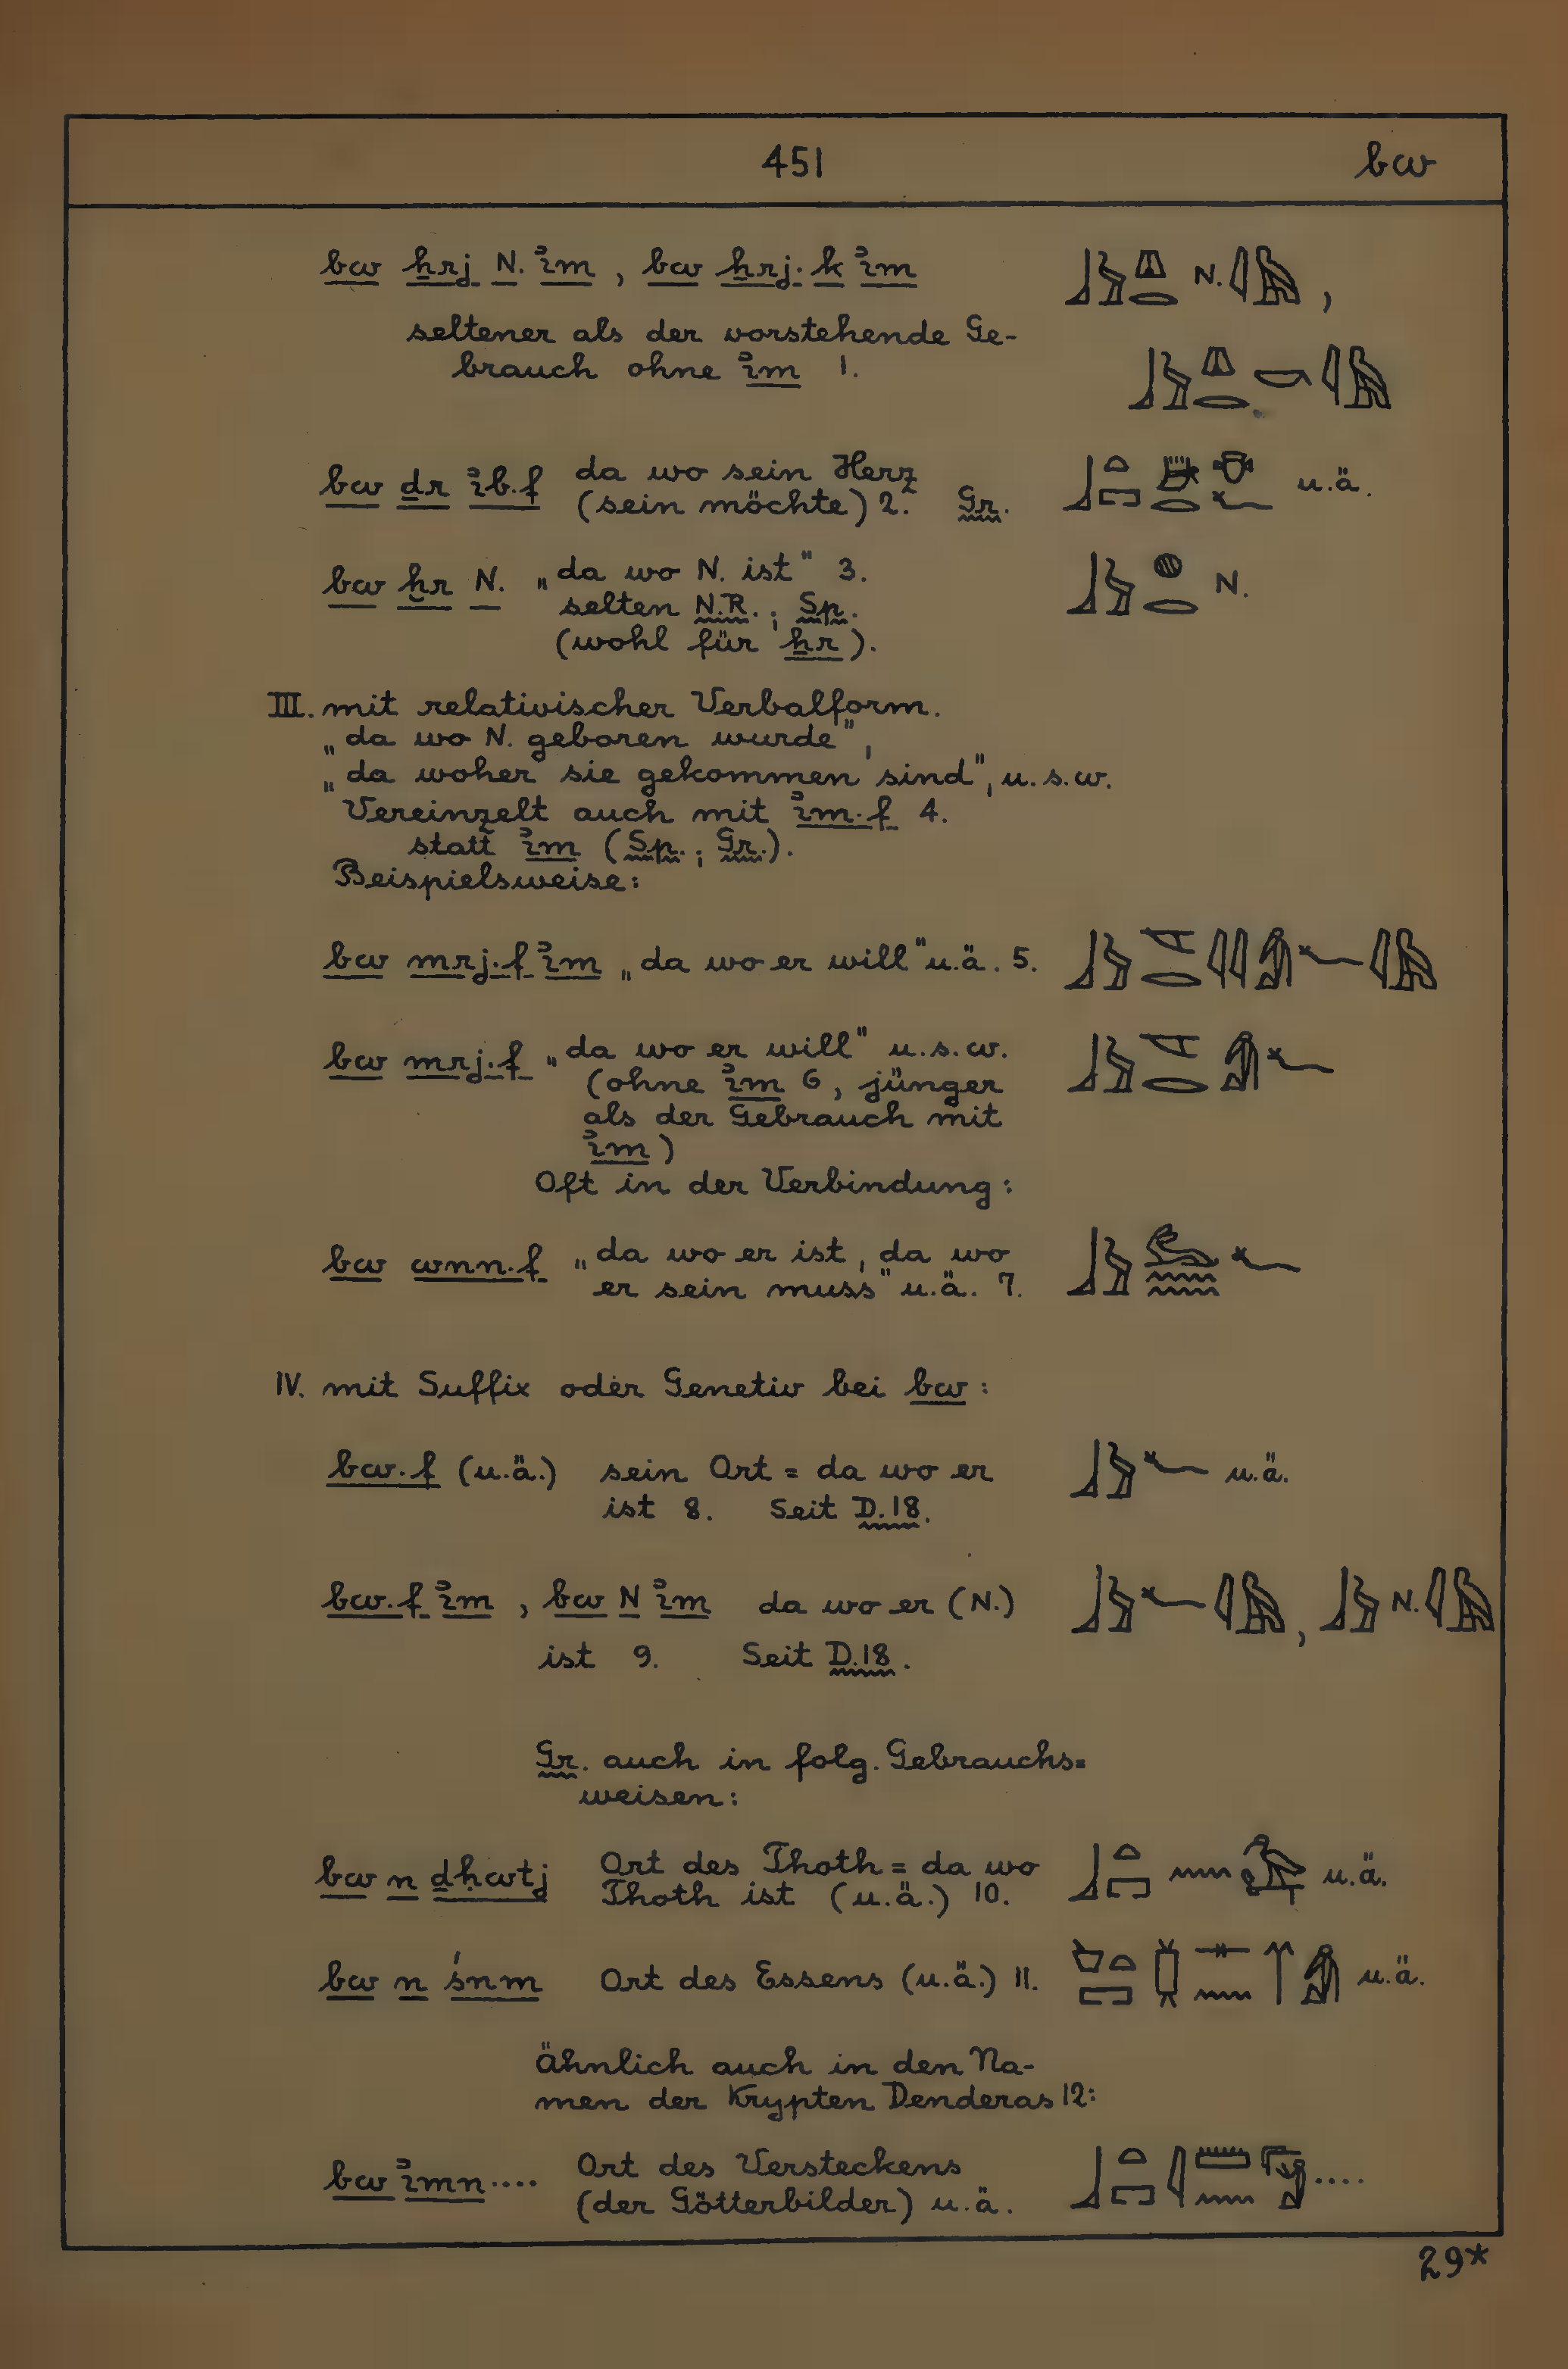 451 bw
bw ẖrj N. ı͗m , bw ẖrj.k ı͗m N. ,
seltener als der vorstehende Ge-
brauch ohne ı͗m 1.
bw ḏr ı͗b.f da wo sein Herz
(sein möchte) 2. Gr. u.ä.
bw ḫr N. „da wo N. ist" 3. N.
selten N.R.; Sp.
(wohl für ẖr).
III. mit relativischer Verbalform.
„da wo N. geboren wurde",
„da woher sie gekommen sind", u.s.w.
Vereinzelt auch mit ı͗m.f 4.
statt ı͗m (Sp.; Gr.).
Beispielsweise:
bw mrj.f ı͗m „da wo er will" u.ä. 5.
bw mrj.f „da wo er will" u.s.w.
(ohne ı͗m 6, jünger
als der Gebrauch mit
ı͗m)
Oft in der Verbindung:
bw wnn.f „da wo er ist, da wo
er sein muss" u.ä. 7.
IV. mit Suffix oder Genetiv bei bw:
bw.f (u.ä.) sein Ort = da wo er u.ä.
ist 8. Seit D.18.
bw.f ı͗m , bw N ı͗m da wo er (N.) , N.
ist 9. Seit D.18.
Gr. auch in folg. Gebrauchs=
weisen:
bw n ḏḥwtj Ort des Thoth = da wo u.ä.
Thoth ist (u.ä.) 10.
bw n śnm Ort des Essens (u.ä.) 11. u.ä.
Ähnlich auch in den Na-
men der Krypten Denderas 12:
bw ı͗mn.... Ort des Versteckens ....
(der Götterbilder) u.ä.
29*